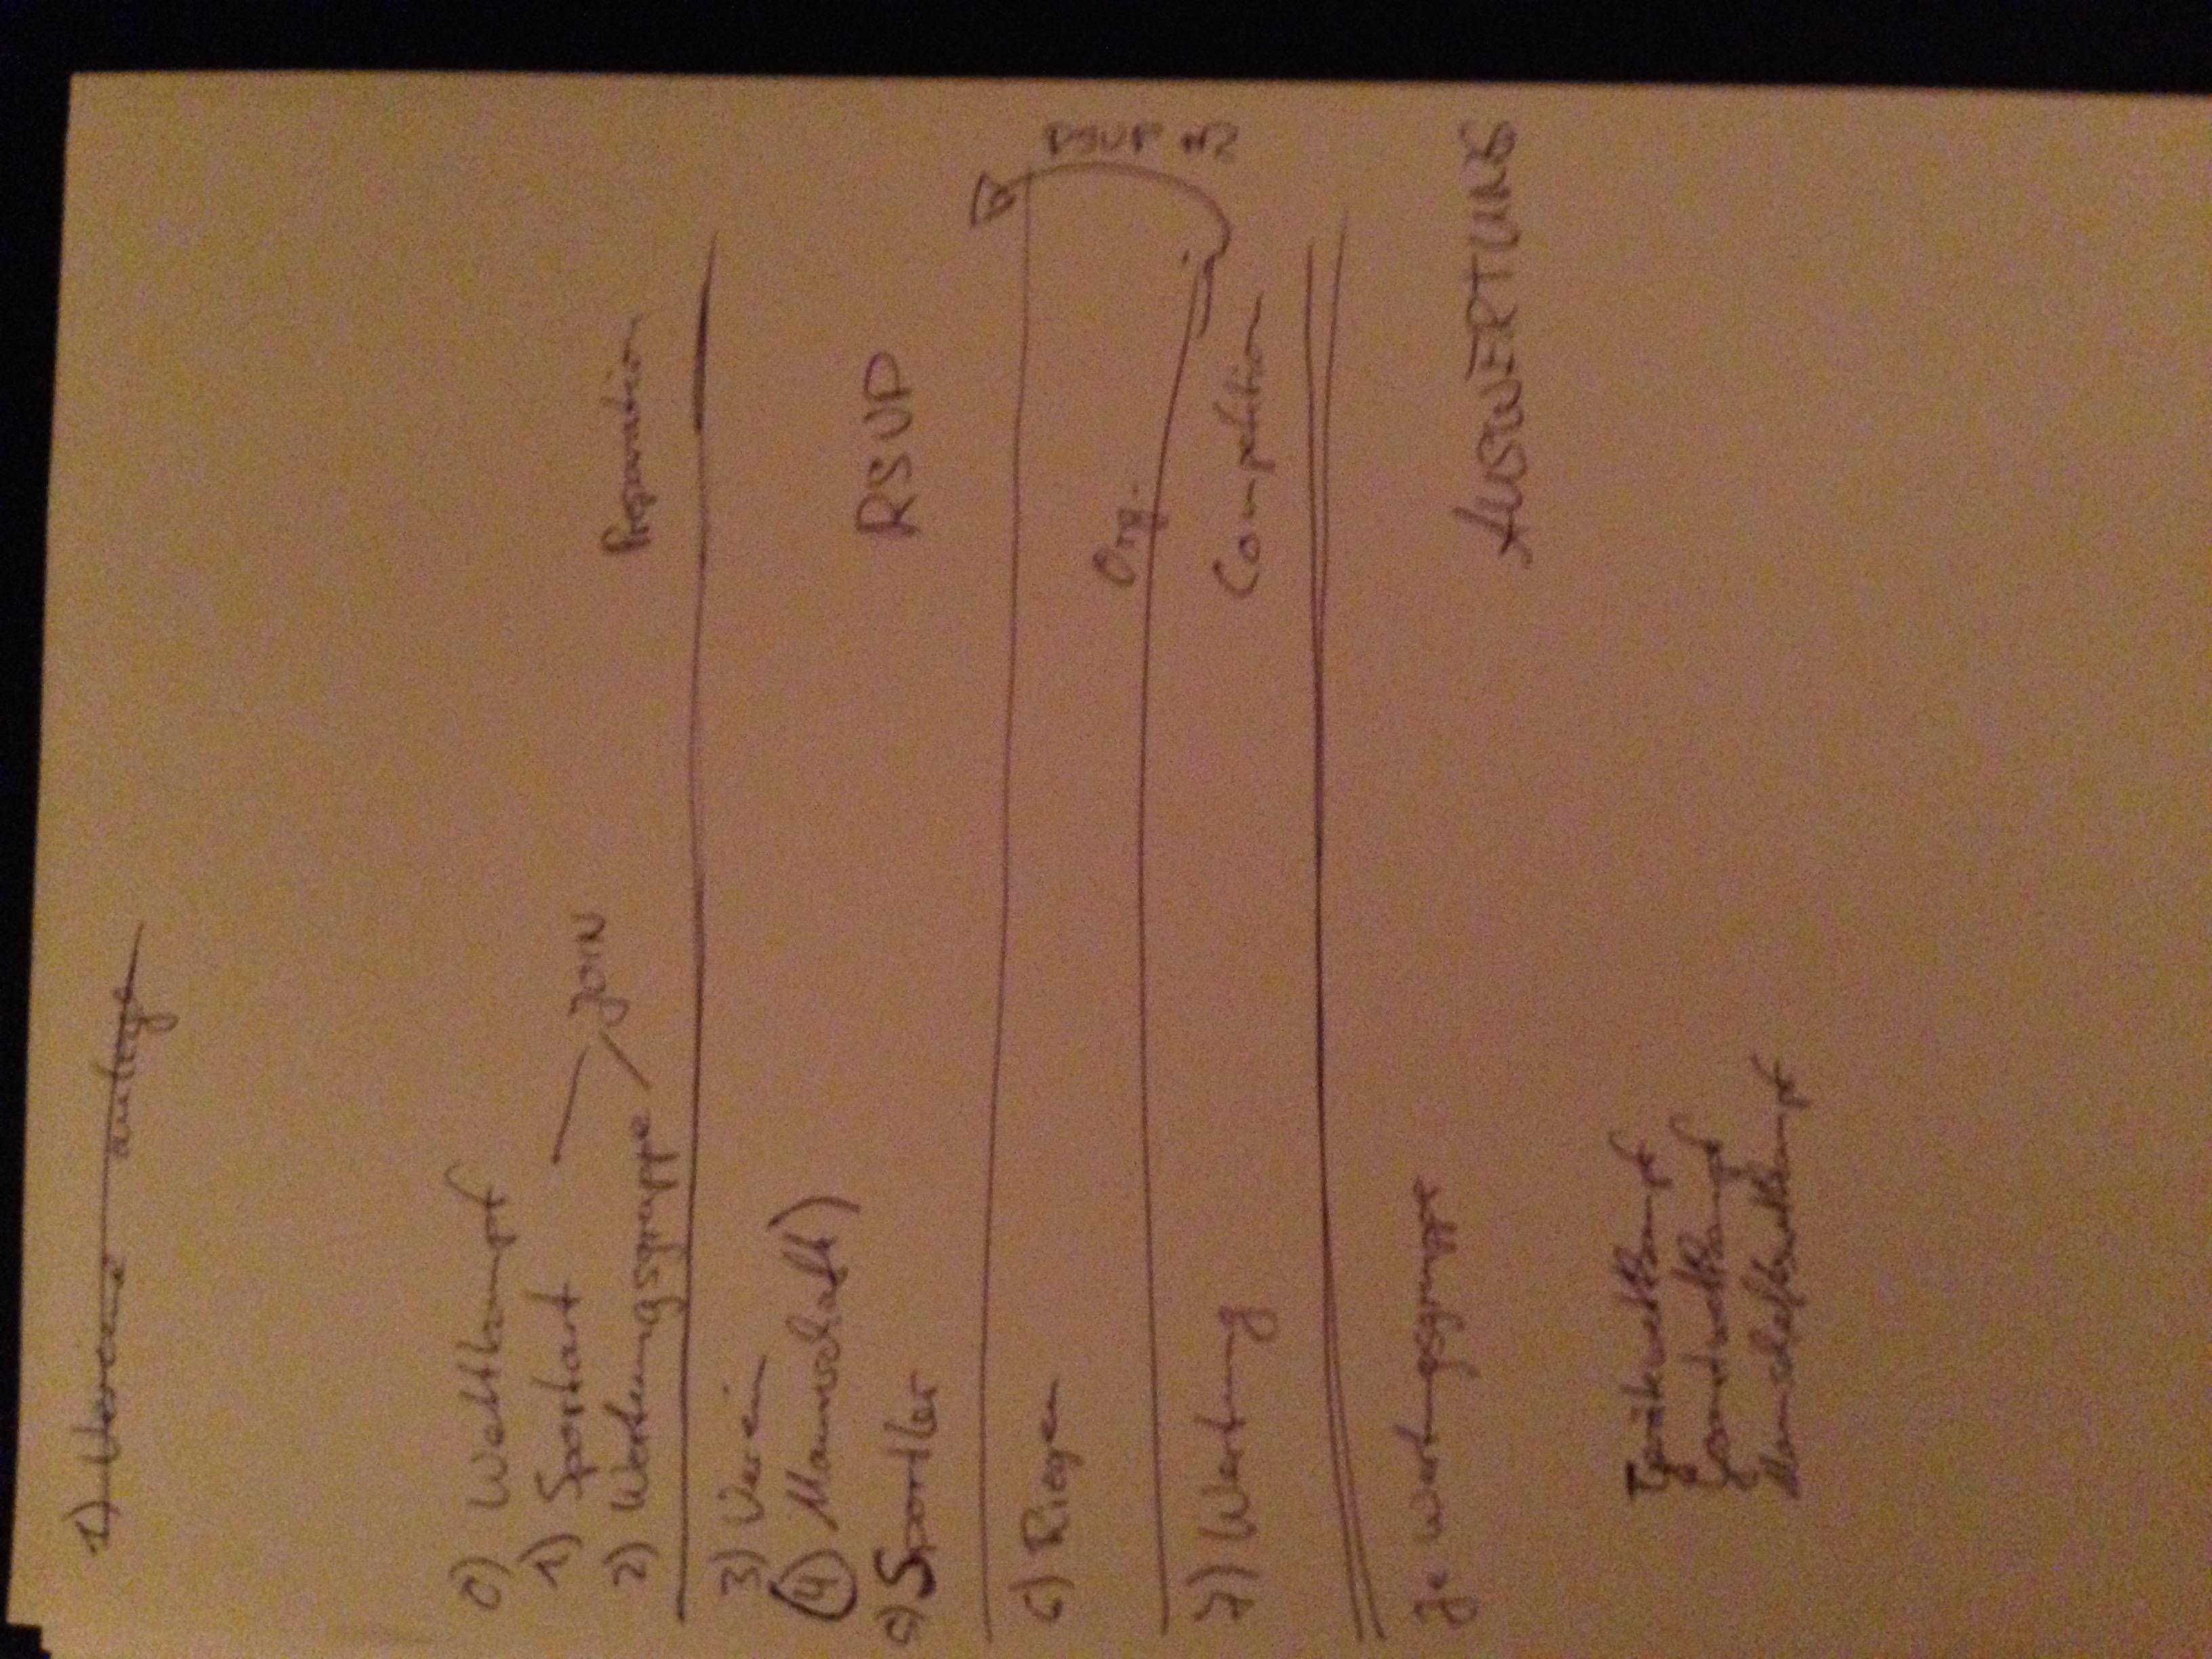 1) Vereine anlegen
0) Wettkampf
1) Sportart
JOIN
2) Wertungsgruppe
Preparation
3) Verein
(4) Mannschaft)
5) Sportler
RSVP
6) Riegen
Org.
RSVP #2
7) Wertung
Competition
Je Wertungsgruppe
AUSWERTUNG
Gerätewettkampf
Gesamtwettkampf
Mannschaftswettkampf